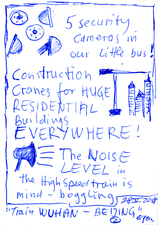 5 security
cameras in
our little bus!
Construction
Cranes for HUGE
RESIDENTIAL
Buildings
EVERYWHERE!
The NOISE
LEVEL in
the High speed train is
mind-boggling
"Train WUHAN - BEIJING"